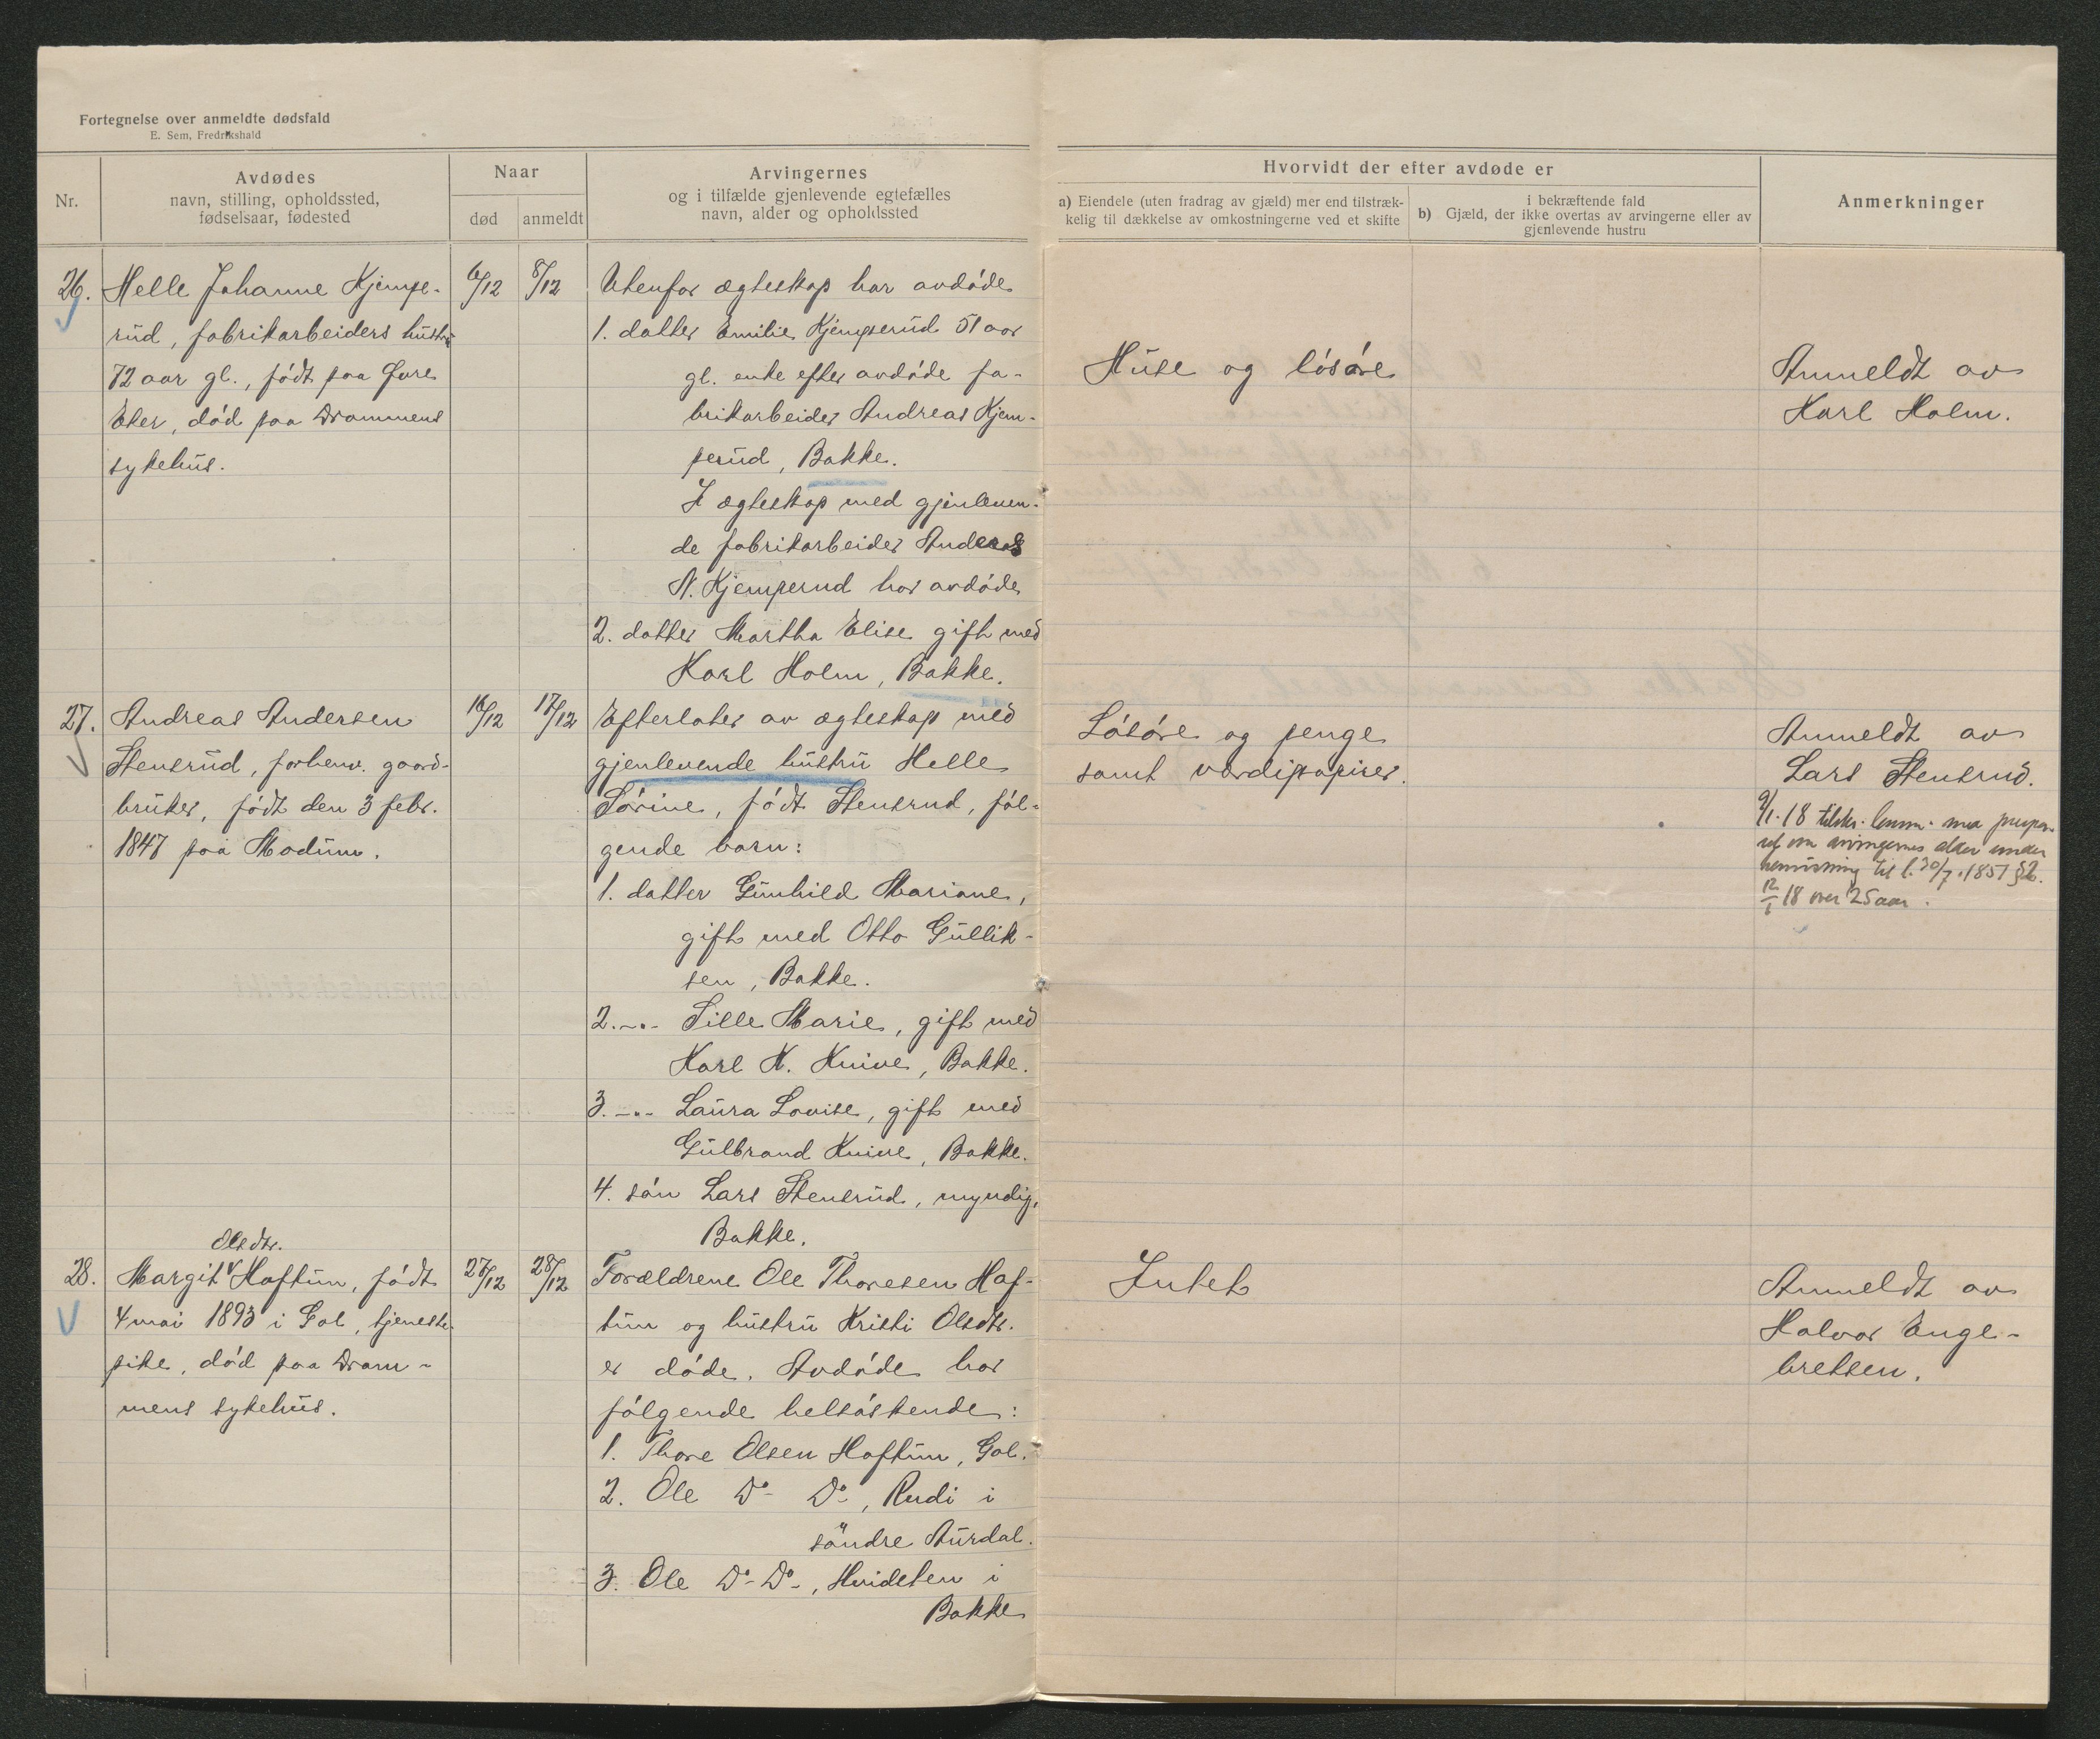 Fortegnelse over anmeldte dødsfald
E. Sem, Fredrikshald
Nr.
Avdødes
navn, stilling, opholdssted,
fødselsaar, fødested
Naar
død
anmeldt
Arvingernes
og i tilfælde gjenlevende egtefælles
navn, alder og opholdssted
Hvorvidt der efter avdøde er
a) Eiendele (uten fradrag av gjæld) mer end tilstræk-
kelig til dækkelse av omkostningerne ved et skifte
i bekræftende fald
b) Gjæld, der ikke overtas av arvingerne eller av
gjenlevende hustru
Anmerkninger
26.
Helle Johanne Kjempe-
rud, fabrikarbeiders hustru
72 aar gl., født paa Øvre
Eker, død paa Drammens
sykehus.
6/12
8/12
Utenfor ægteskap har avdøde
1. datter Emilie Kjemperud 51 aar
gl. enke efter avdøde fa-
brikarbeider Andreas Kjem-
perud, Bakke.
I ægteskap med gjenleven-
de fabrikarbeider Anderas
N. Kjemperud har avdøde
2. datter Martha Elise gift med
Karl Holm, Bakke.
Huse og løsøre
Anmeldt av
Karl Holm.
27.
Andreas Andersen
Stensrud, forhenv. gaard-
bruker, født den 3 febr.
1847 paa Modum.
16/12
17/12
Efterlater av ægteskap med
gjenlevende hustru Helle
Sørine, født Stensrud, føl-
gende barn:
1. datter Gunhild Mariane,
gift med Otto Gullik-
sen, Bakke.
2. -"- Sille Marie, gift med
Karl K. Knive, Bakke.
3. -"- Laura Lovise, gift med
Gulbrand Knive, Bakke.
4. søn Lars Stensrud, myndig,
Bakke.
Løsøre og penge
samt værdipapirer.
Anmeldt av
Lars Stensrud.
9/1.18 tilskr. lensm. med
om arvingernes alder under
henvisning til l. 30/7.1851 §2.
12/1 18 over 25 aar.
28.
Olsdtr.
Margit Haftun, født
4 mai 1893 i Gol, tjeneste-
pike, død paa Dram-
mens sykehus.
27/12
28/12
Forældrene Ole Thoresen Haf-
tun og hustru Kristi Olsdtr.
er døde. Avdøde har
følgende helsøskende:
1. Thore Olsen Haftun, Gol.
2. Ole Do- Do-, Rudi i
søndre Aurdal.
3. Ole Do- Do-, Hvidsten i
Bakke
Intet
Anmeldt av
Halvor Enge-
bretsen.